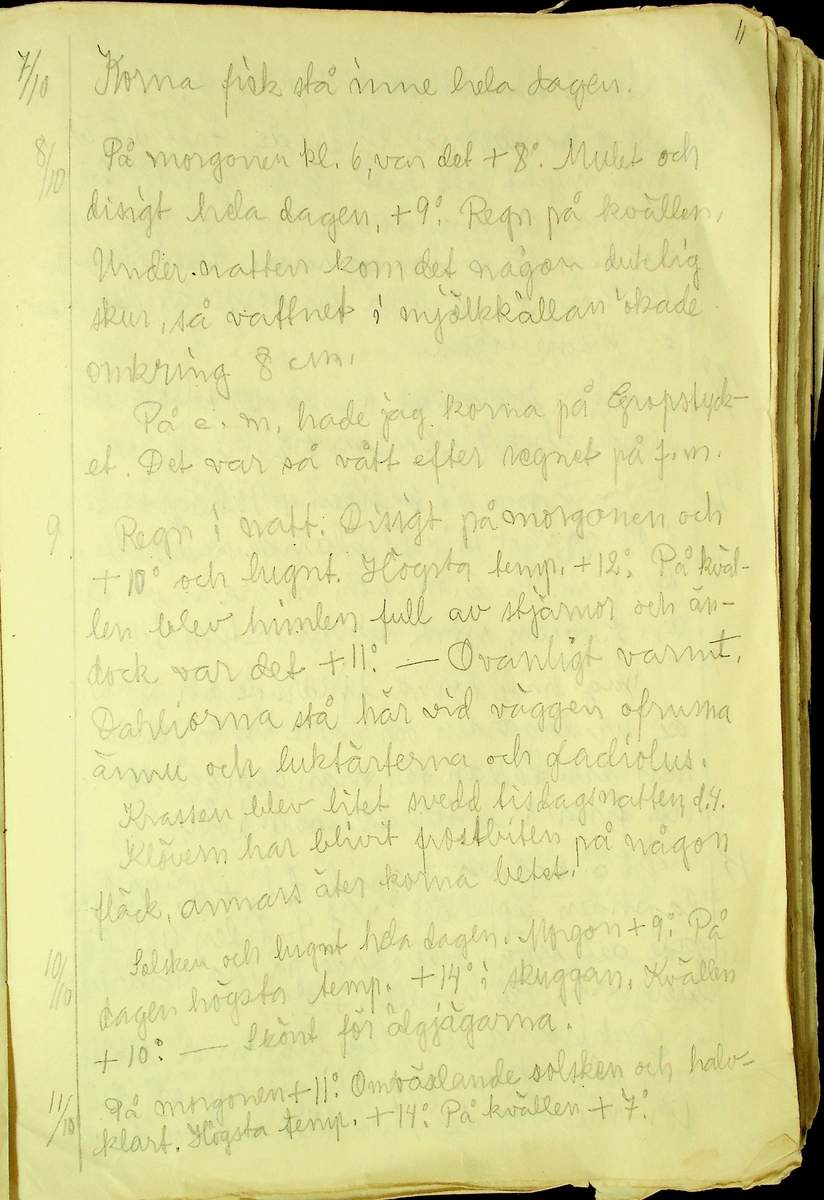 11
7/10 Korna fick stå inne hela dagen.
8/10 På morgonen kl. 6, var det +8°. Mulet och
disigt hela dagen, +9°. Regn på kvällen.
Under natten kom det någon duktig
skur, så vattnet i mjölkkällan ökade
omkring 8 cm.
På e. m. hade jag korna på Gropstyck-
et. Det var så vått efter regnet på f. m.
9 Regn i natt. Disigt på morgonen och
+10° och lugnt. Högsta temp. +12°. På kväl-
len blev himlen full av stjärnor och än-
dock var det +11°. — Ovanligt varmt.
Dahliorna stå här vid väggen ofrusna
ännu och luktärterna och gladiolus.
Krassen blev litet svedd tisdagsnatten d. 4.
Klövern har blivit frostbiten på någon
fläck, annars äter korna betet.
10/10 Solsken och lugnt hela dagen. Morgon +9°. På
dagen högsta temp. +14° i skuggan. Kvällen
+10°. — Skönt för älgjägarna.
11/10 På morgonen +11°. Omväxlande solsken och halv-
klart. Högsta temp. +14°. På kvällen +7°.